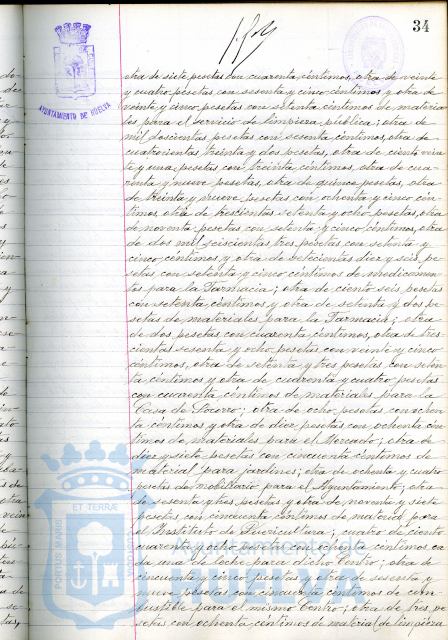 34
AYUNTAMIENTO DE HUELVA
otra de siete pesetas con cuarenta céntimos, otra de veinte
y cuatro pesetas con sesenta y cinco céntimos y otra de
veinte y cinco pesetas con setenta céntimos de materia-
les para el servicio de limpieza pública; otra de
mil doscientas pesetas con sesenta céntimos, otra de
cuatrocientas treinta y dos pesetas, otra de ciento vein-
te y una pesetas con treinta céntimos, otra de cua-
renta y nueve pesetas, otra de quince pesetas, otra
de treinta y nueve pesetas con ochenta y cinco cén-
timos, otra de trescientas setenta y ocho pesetas, otra
de noventa pesetas con setenta y cinco céntimos, otra
de dos mil seiscientas tres pesetas con setenta y
cinco céntimos, y otra de setecientas diez y seis pe-
setas con setenta y cinco céntimos de medicamen-
tos para la Farmacia; otra de ciento seis pesetas
con setenta céntimos y otra de setenta y dos pe-
setas de materiales para la Farmacia; otra
de dos pesetas con cuarenta céntimos, otra de tres-
cientas sesenta y ocho pesetas con veinte y cinco
céntimos, otra de setenta y tres pesetas con seten-
ta céntimos y otra de cuarenta y cuatro pesetas
con cuarenta céntimos de materiales para la
Casa de Socorro; otra de ocho pesetas con ochen-
ta céntimos y otra de diez pesetas con ochenta cén-
timos de materiales para el Mercado; otra de
diez y siete pesetas con cincuenta céntimos de
material para jardines; otra de ochenta y cuatro
pesetas de mobiliario para el Ayuntamiento; otra
de sesenta y tres pesetas y otra de noventa y siete
pesetas con cincuenta céntimos de material para
el Instituto de Puericultura; cuatro de ciento
cuarenta y ocho pesetas con céntimos ca-
da una de leche para dicho Centro; otra de
cincuenta y cinco pesetas y otra de sesenta y
nueve pesetas con cincuenta céntimos de com-
bustible para el mismo Centro; otra de tres pe-
setas con ochenta céntimos de material de limpieza
PORTUS MARIS
ET TERRAE
Ayuntamiento de
Huelva